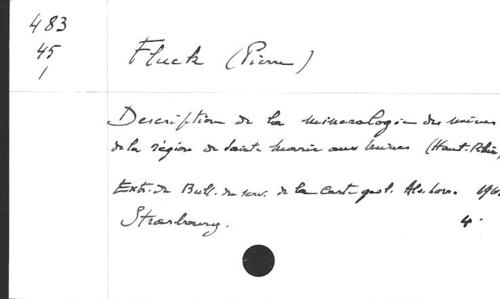 483
45
1
Fluck (Pierre)
Description de la minéralogie des mines
de la région de Sainte Marie aux Mines (Haut-Rhin,
Extr. du Bull. du serv. de la cart. géol. Als. Lorr.
Strasbourg. 4°